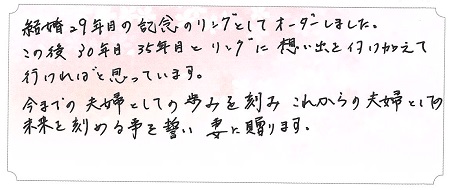 結婚29年目の記念のリングとしてオーダーしました。
この後 30年目 35年目と リングに 想い出を付け加えて
行ければと思っています。
今までの 夫婦としての歩みを刻み これからの夫婦としての
未来を刻める事を誓い 妻に贈ります。